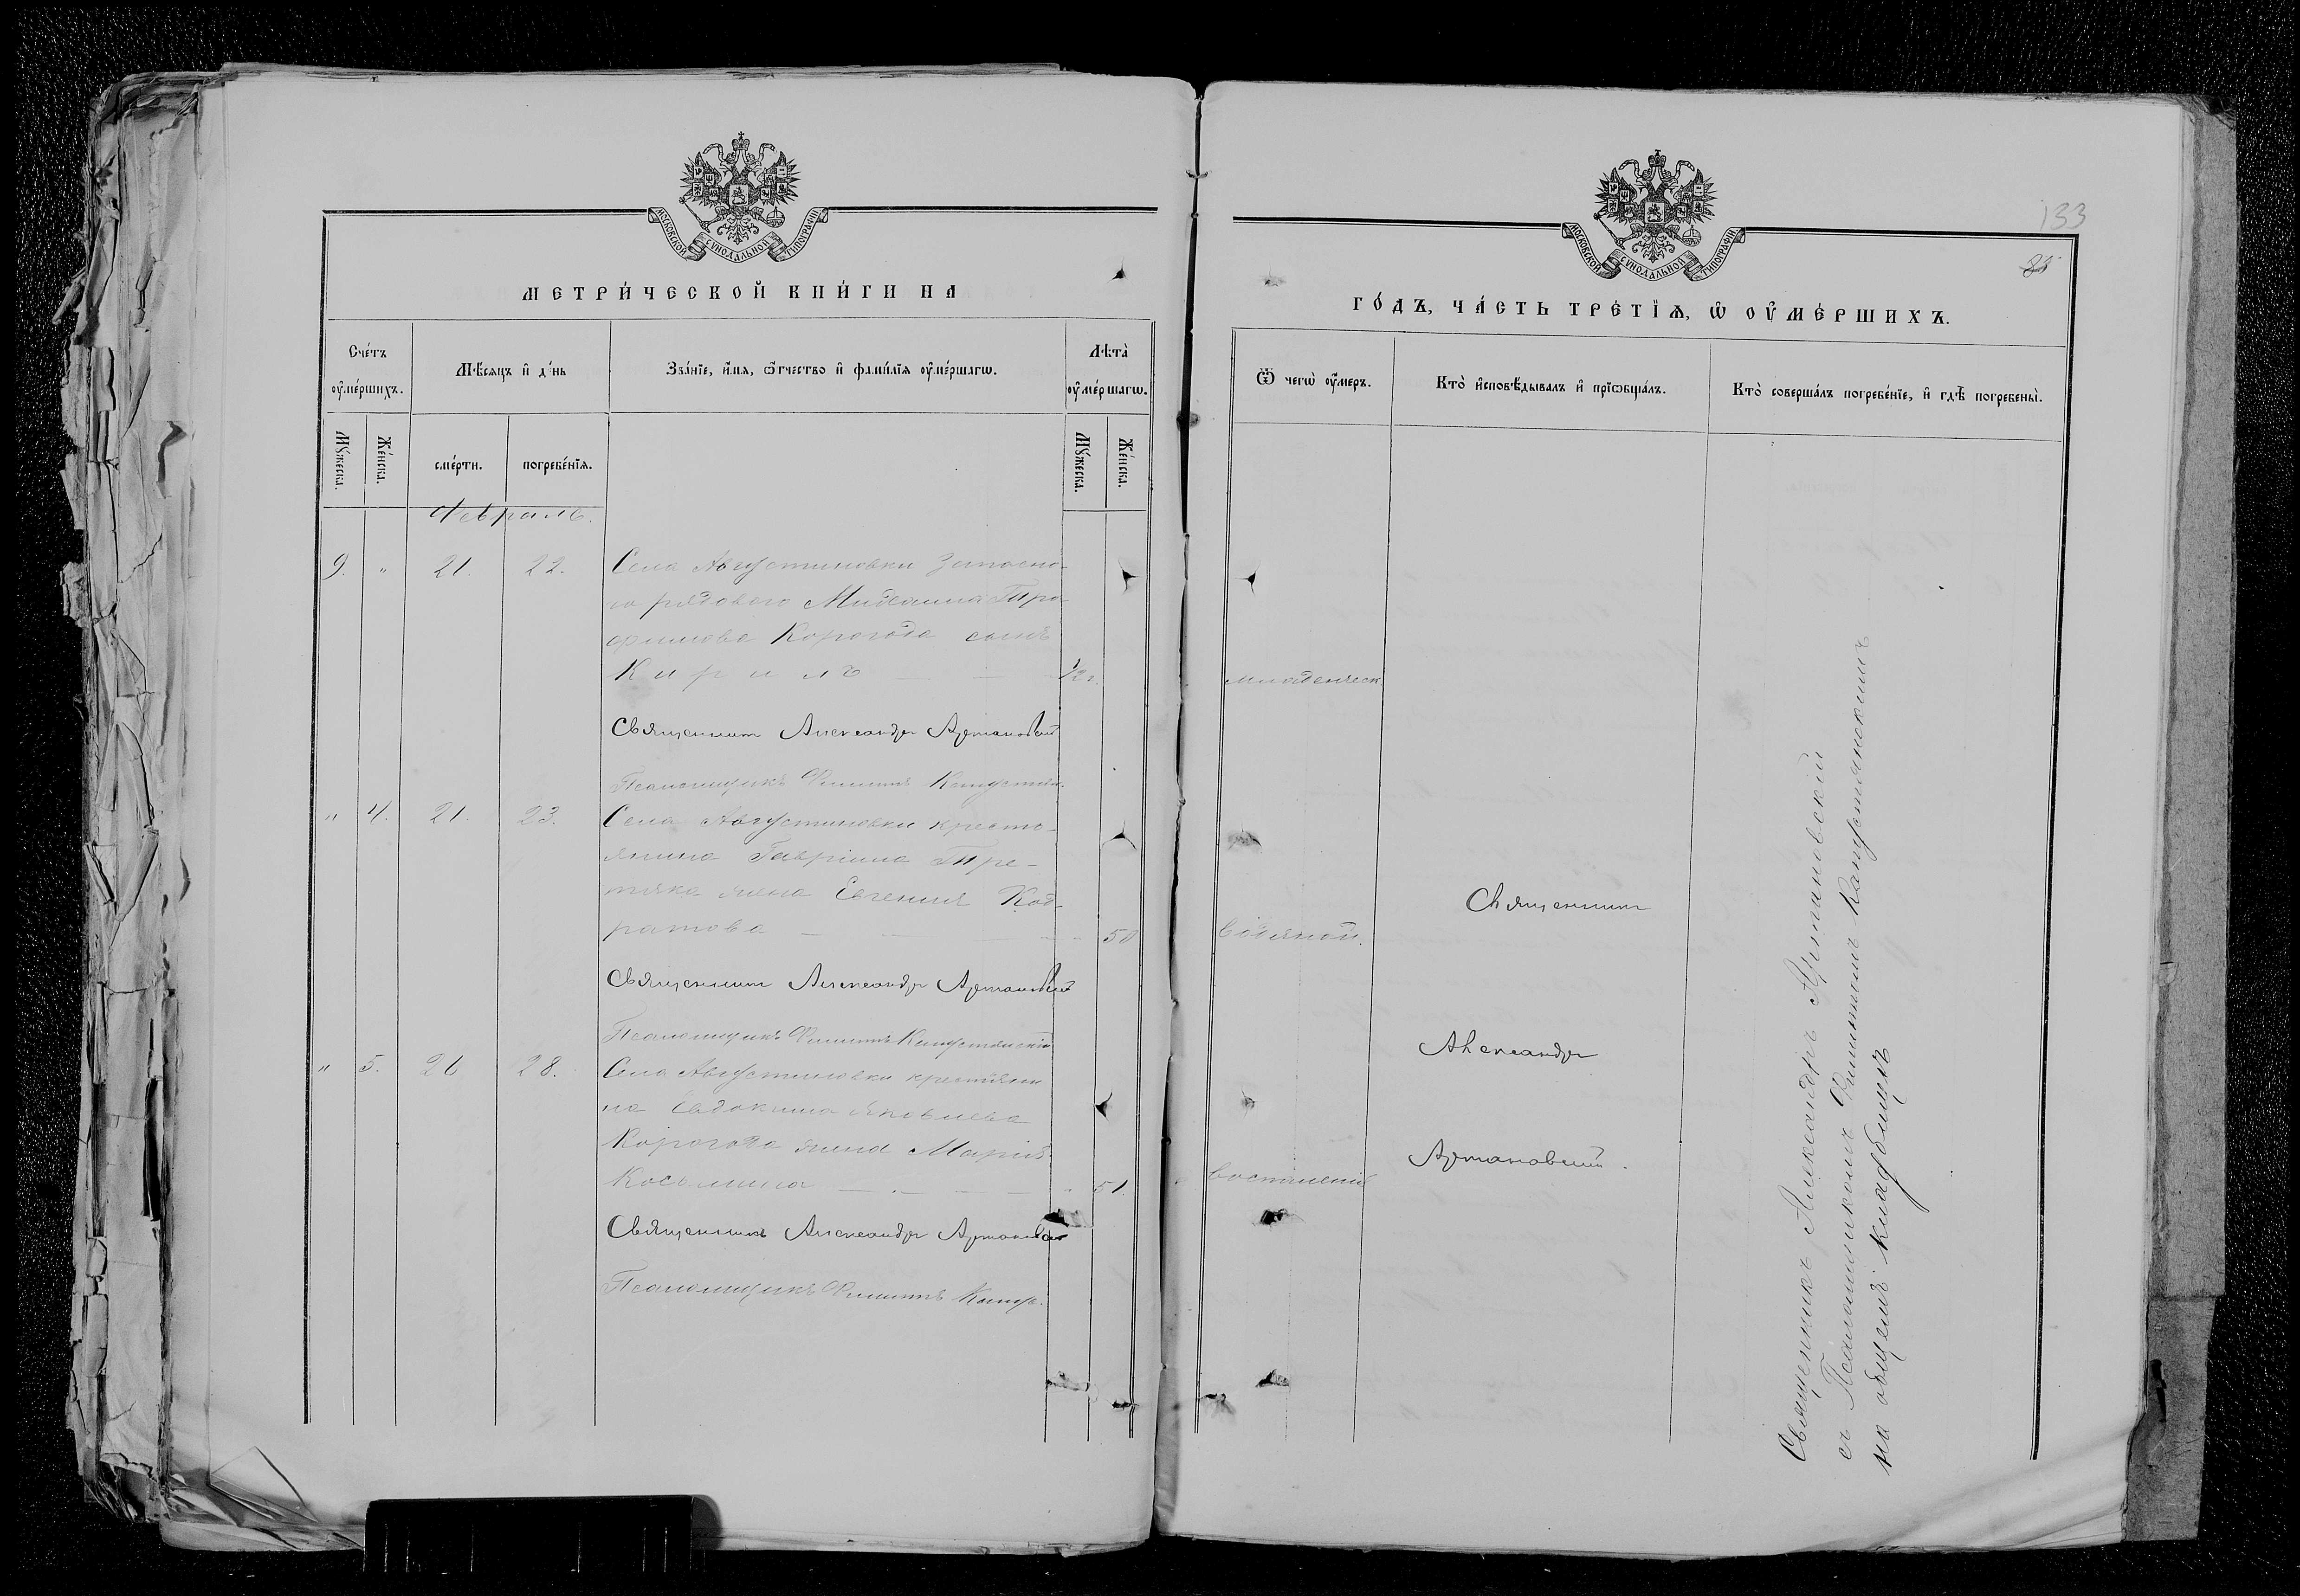 МОСКОВСКОЙ СУНОДАЛЬНОЙ ТИПОГРАФІИ
МЕТРИ́ЧЕСКОЙ КНИ́ГИ НА
Сче́тъ ᲂу҆ме́ршихъ.
Мѣ́сяцъ и҆ де́нь
Зва́нїе, и҆́мѧ, ѻ҆́тчество и҆ фами́лїѧ ᲂу҆ме́ршагѡ.
Лѣта̀ ᲂу҆ме́ршагѡ.
Мꙋ́жеска.
Же́нска.
сме́рти.
погребе́нїѧ.
Мꙋ́жеска.
Же́нска.
Февраль.
9. " 21. 22. Села Августиновки Запасно-
го рядового Михаила Тро-
фимова Корогода сынъ
Кирилъ — — ½ г.
Священникъ Александръ Артановскій
Псаломщикъ Филиппъ Капустян.
" 4. 21. 23. Села Августиновки кресть-
янина Гавріила Тре-
тяка жена Евгенія Код-
ратова — — — 50
Священникъ Александръ Артановскій
Псаломщикъ Филиппъ Капустянскій
" 5. 26 28. Села Августиновки крестьяни
на Евдокима Яковлева
Корогода жена Марія
Косьмина — — — — 51.
Священникъ Александръ Артановскій
Псаломщикъ Филиппъ Капус.
133
МОСКОВСКОЙ СУНОДАЛЬНОЙ ТИПОГРАФІИ
ГО́ДЪ, ЧА́СТЬ ТРЕ́ТЇѦ, Ѡ҆ ОУ҆МЕ́РШИХЪ.
Ѿ чегѡ̀ ᲂу҆́меръ.
Кто̀ и҆сповѣ́дывалъ и҆ прїѡбща́лъ.
Кто̀ соверша́лъ погребе́нїе, и҆ гдѣ̀ погребены̀.
младенческ
водяной.
воспаленій
Священникъ
Александръ
Артановскій.
Священникъ Александръ Артановскій
съ Псаломщикомъ Филиппомъ Капустянскимъ
на общемъ кладбищѣ